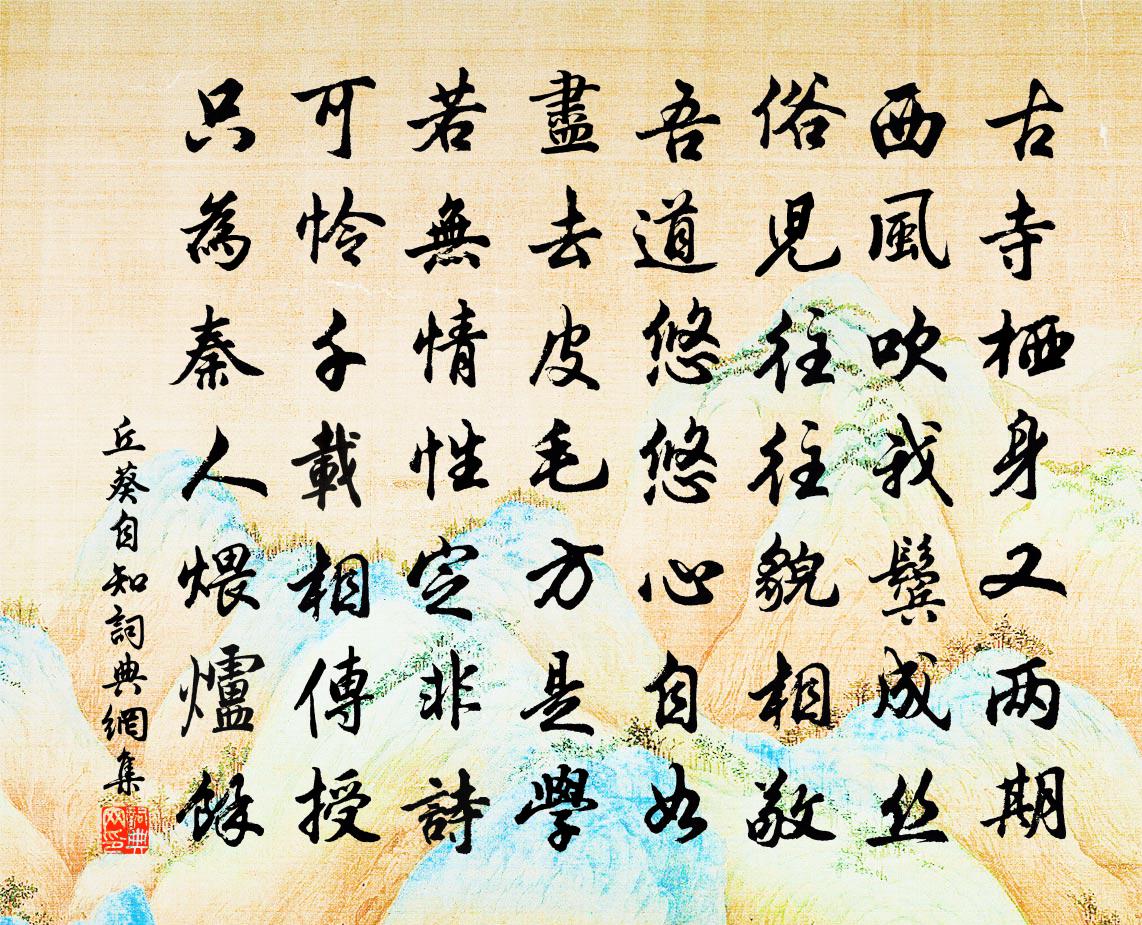 古寺栖身又两期
西風吹我鬓成丝
俗児往往貌相敬
吾道悠悠心自如
盡去皮毛方是學
若無情性定非詩
可怜千載相傳授
只為秦人煨爐餘
丘葵自知詞典網集